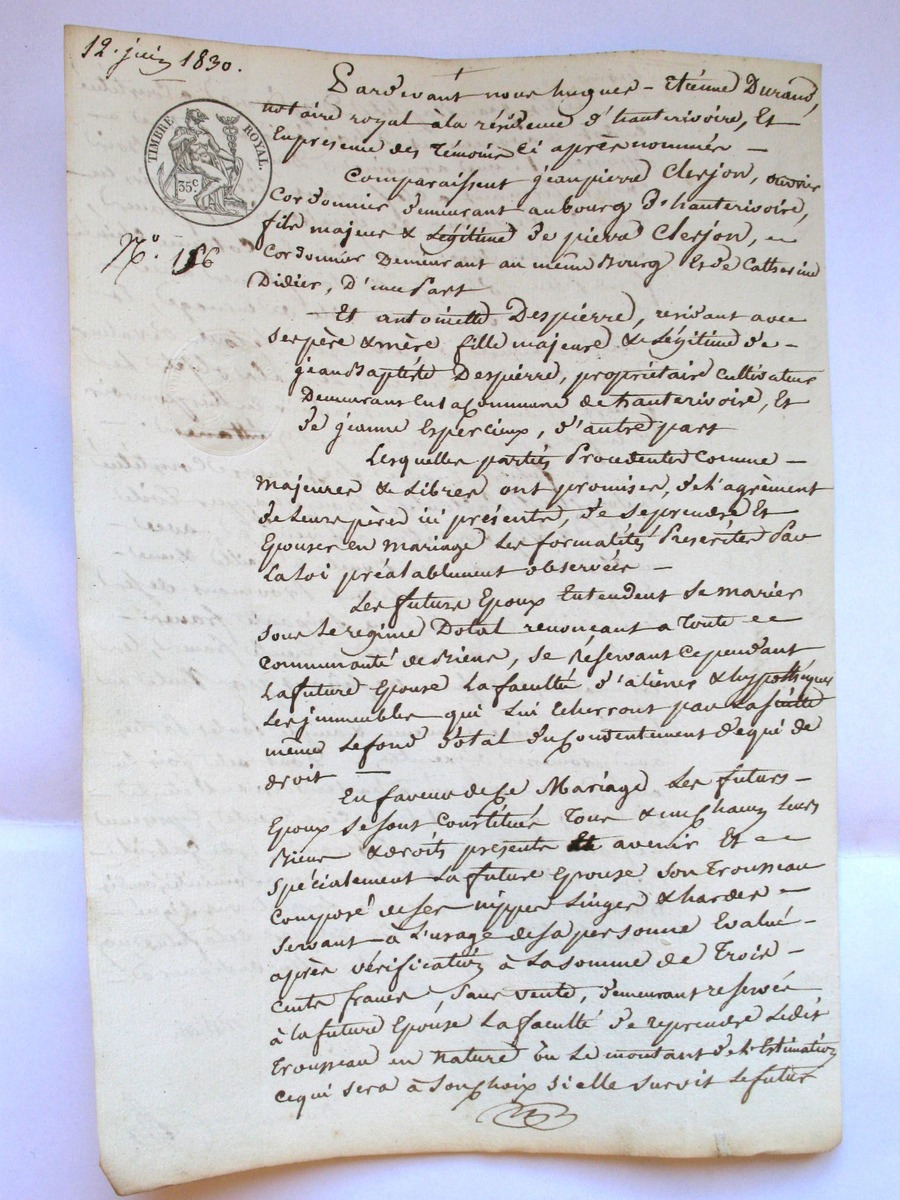 12. juin 1830.
TIMBRE ROYAL.
35 c
N.° 186
Pardevant nous hugues - Etienne Durand,
notaire royal à la résidence d'hauterivoire, Et
En presence des Témoins ci après nommés -
Comparaissent jean pierre Clerjon, ouvrier
Cordonnier demeurant au bourg d'hauterivoire,
fils majeur & Légitime de pierre Clerjon,
Cordonnier Demeurant au même Bourg Et de Catherine
Didier, D'une Part
Et antoinette Despierre, residant avec
ses père & mère fille majeure & Légitime de -
jean Baptiste Despierre, propriétaire Cultivateur
Demeurant En la Commune de hauterivoire, Et
de jeanne Espercieux, d'autre part
Lesquelles parties Procedentes Comme -
majeures & Libres ont promises, de l'agrément
de Leurs pères ici présents, de se prendre Et
Epouser en mariage Les formalités Prescrites Par
La Loi préalablement observées -
Les futurs Epoux Entendent se marier
sous Le regime Dotal renonçant a Toute
Communauté de Biens, se Réservant Cependant
La future Epouse La faculté d'aliener & hypothéquer
Les immeubles qui Lui Echerront par La suitte
même Le fond dotal du Consentement de qui de
droit -
En faveur de Ce Mariage Les futurs -
Epoux se sont Constitués Tous & un Chacun Leurs
Biens & droits presents Et avenir Et
spécialement La future Epouse son Trousseau
Composé de ses nippes Linges & hardes -
servant à L'usage de sa personne Evalué -
après vérification à La somme de Trois -
Cents francs, sans vente, demeurant reservée
à la future Epouse La faculté de reprendre Ledit
Trousseau en nature ou Le montant de l'Estimation
Ce qui sera à son Choix si elle survit Le futur